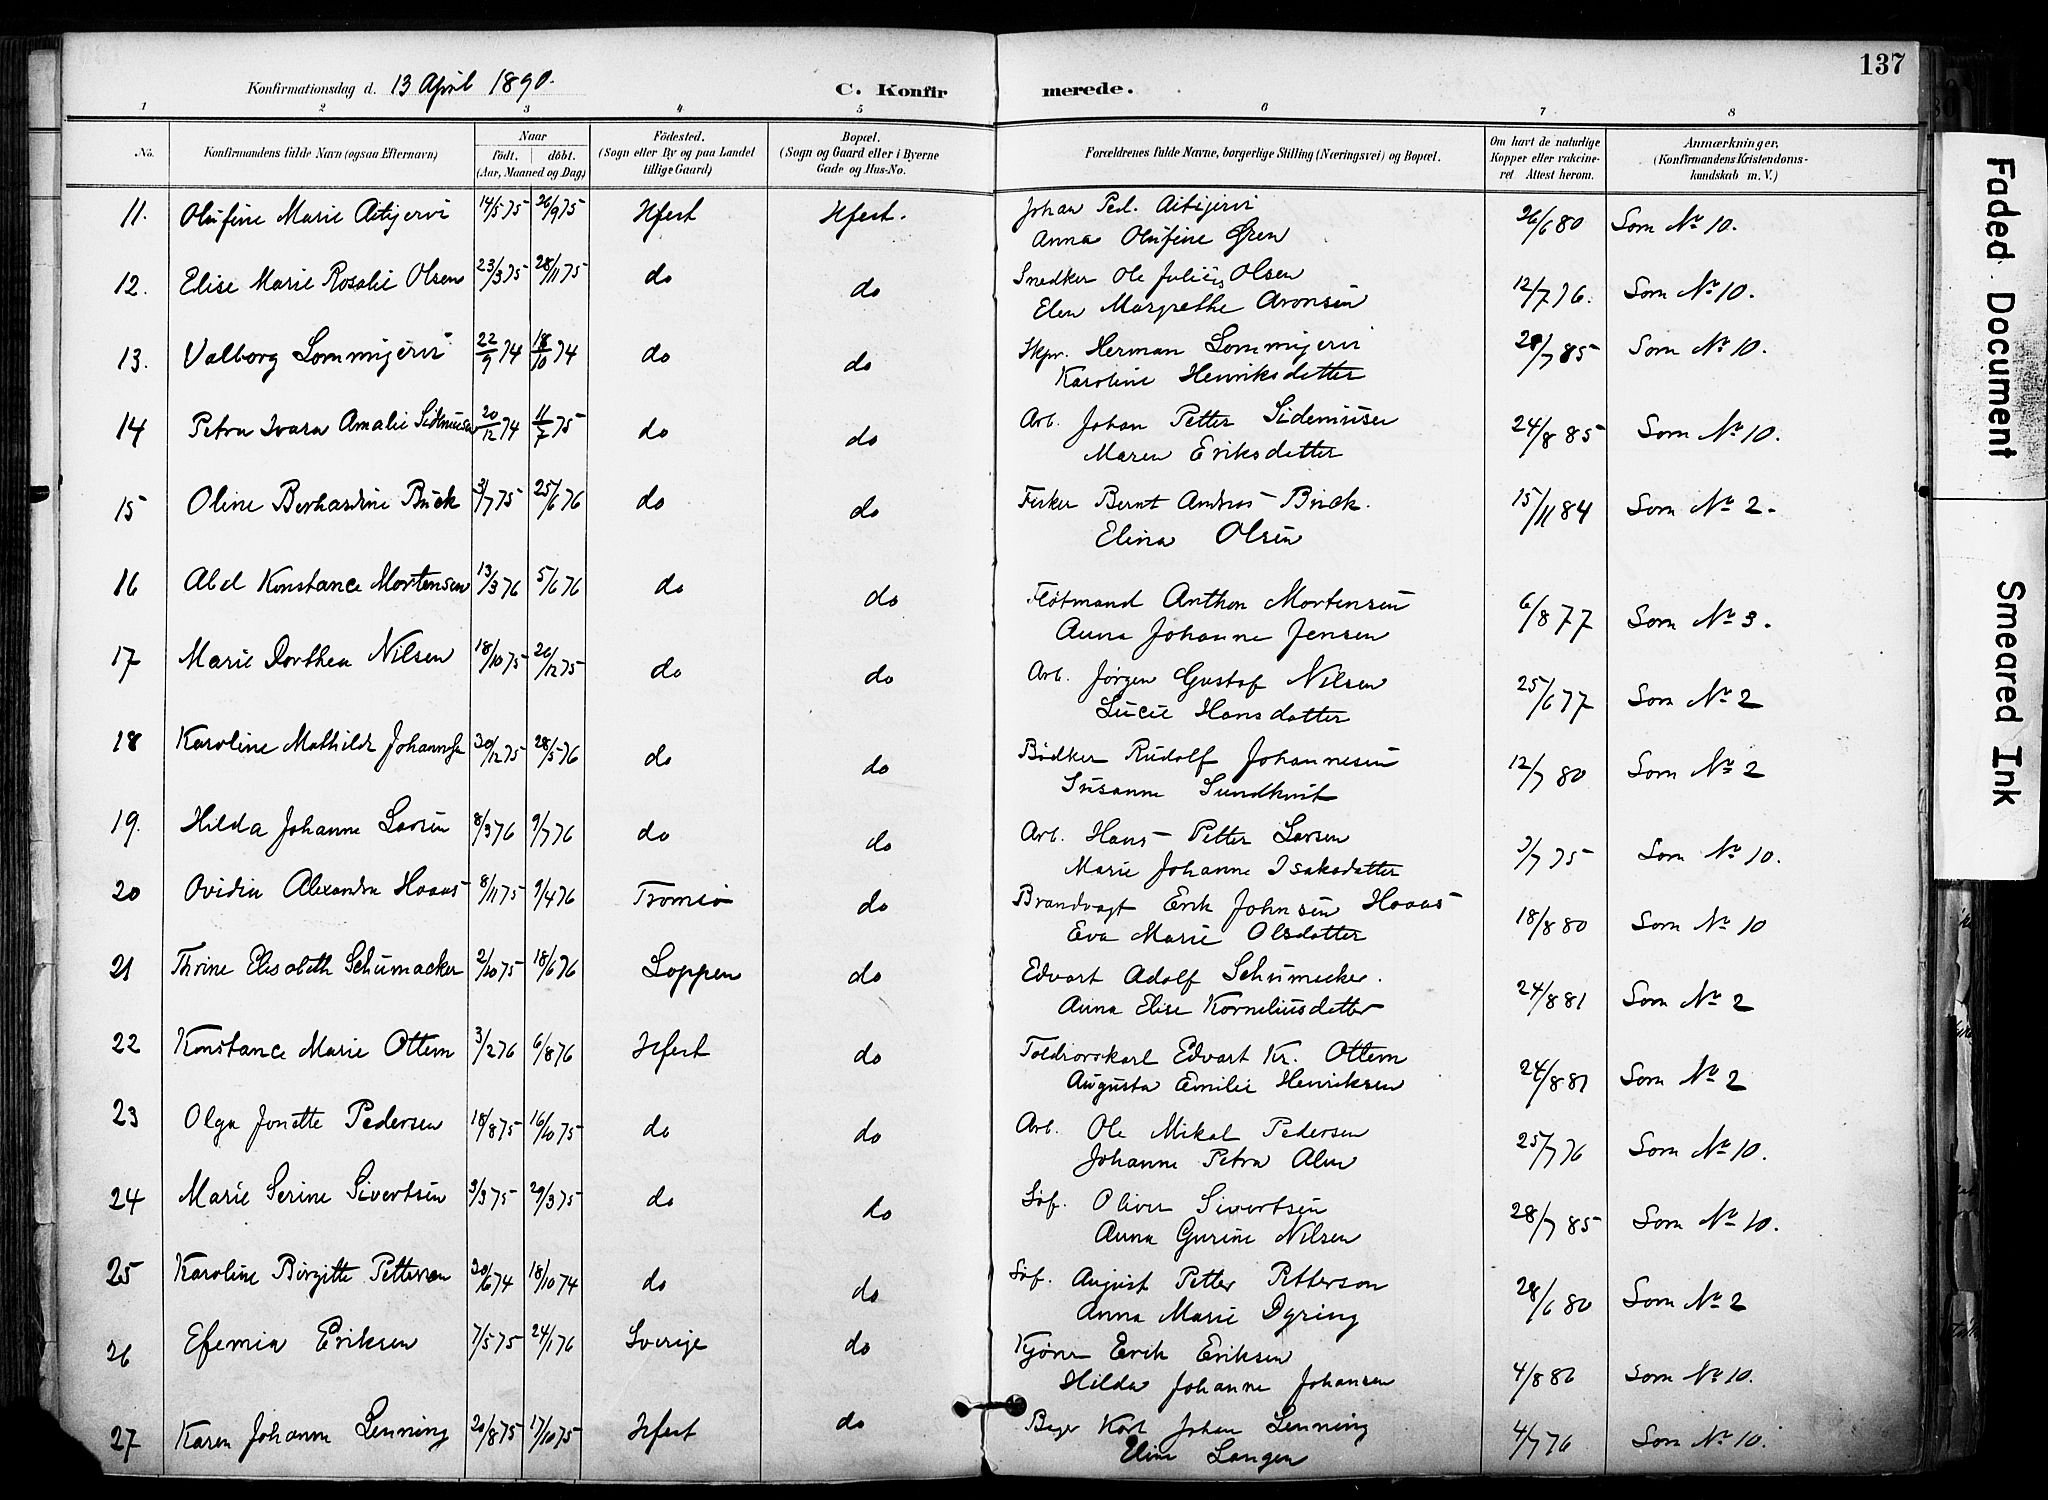 137
Konfirmationsdag d. 13 April 1890.
C. Konfirmerede.
1 2 3 4 5 6 7 8
No.
Konfirmandens fulde Navn (ogsaa Efternavn)
Naar
födt. döbt.
(Aar, Maaned og Dag)
Födested.
(Sogn eller By og paa Landet
tillige Gaard)
Bopæl.
(Sogn og Gaard eller i Byerne
Gade og Hus-No.
Forældrenes fulde Navne, borgerlige Stilling (Næringsvei) og Bopæl.
Om havt de naturlige
Kopper eller vakcine-
ret Attest herom.
Anmærkninger.
(Konfirmandens Kristendoms-
kundskab m. V.)
11. Olufine Marie Aitijervi 14/5 75 26/9 75 Hfest Hfest. Johan Ped. Aitijervi 26/6 80 Som No 10.
Anna Olufine Gren
12. Elise Marie Rosalie Olsen 23/3 75 28/11 75 do do Snedker Ole Julius Olsen 12/7 76. Som No 10.
Elen Margrethe Aronsen
13. Valborg Lommijervi 22/9 74 18/10 74 do do Skpr. Herman Lommijervi 28/7 85 Som No 10.
Karoline Henriksdatter
14 Petra Ivara Amalie Sidenius 20/12 74 11/7 75 do do Arb. Johan Petter Sideniusen 24/8 85 Som No 10.
Maren Eriksdatter
15 Oline Berhardine Buck 3/7 75 25/6 76 do do Fisker Bernt Andreas Buck. 15/11 84 Som No 2.
Elina Olsen
16 Abel Konstance Mortensen 13/3 76 5/6 76 do do Fløtmand Anthon Mortensen 6/8 77 Som No 3.
Anna Johanne Jensen
17 Marie Dorthea Nilsen 18/10 75 26/12 75 do do Arb. Jørgen Gustaf Nilsen 25/6 77 Som No 2
Lucie Hansdatter
18 Karoline Mathilde Johannesen 30/12 75 28/5 76 do do Bødker Rudolf Johannesen 12/7 80 Som No 2
Susanne Sundkvist
19. Hilda Johanne Larsen 8/3 76 9/7 76 do do Arb. Hans Petter Larsen 3/7 75 Som No 10.
Marie Johanne Isaksdatter
20 Ovidia Alexandra Haaas 8/11 75 9/4 76 Tromsø do Brandvagt Erik Johnsen Haaas 18/8 80 Som No 10
Eva Marie Olsdatter
21 Thrine Elisabeth Schumacker 2/10 75 18/6 76 Loppen do Edvart Adolf Schumacker. 24/8 81 Som No 2
Anna Elise Korneliusdatter
22 Konstance Marie Ottem 3/2 76 6/8 76 Hfest do Toldrorskarl Edvart Kr. Ottem 24/8 81 Som No 2
Augusta Emilie Henriksen
23 Olga Jonette Pedersen 18/8 75 16/10 75 do do Arb. Ole Mikal Pedersen 25/7 76 Som No 10.
Johanne Petra Alen
24 Marie Serine Sivertsen 3/3 75 29/3 75 do do Søf. Oliver Sivertsen 28/7 85 Som No 10.
Anna Gurine Nilsen
25 Karoline Birgitte Petterson 30/6 74 18/10 74 do do Søf. August Petter Petterson 28/6 80 Som No 2
Anna Marie Dyring
26 Efemia Eriksen 7/5 75 24/1 76 Sverige do Erik Eriksen 4/8 86 Som No 10.
Hilda Johanne Johansen
27 Karen Johanne Lenning 20/8 75 17/10 75 Hfest do Karl Johan Lenning 4/7 76 Som No 10.
Eline Langen
Faded Document
Smeared Ink